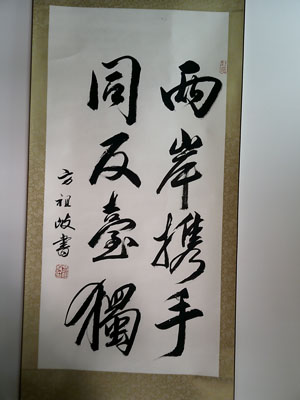 兩岸攜手
同反臺獨
方祖岐書